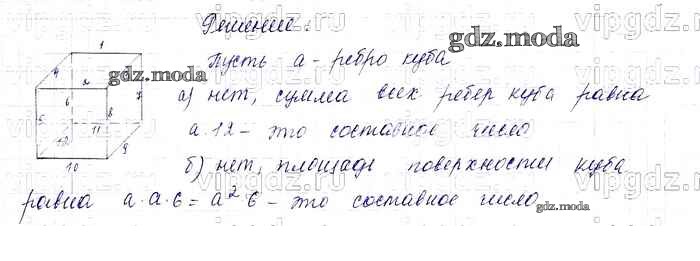 Решение:
Пусть а - ребро куба
а) нет, сумма всех ребер куба равна
а·12 - это составное число
б) нет, площадь поверхности куба
равна а·а·6 = а²·6 - это составное число
1
4
2
3
6
8
7
5
11
12
9
10
gdz.moda
gdz.moda
gdz.moda
vipgdz.ru